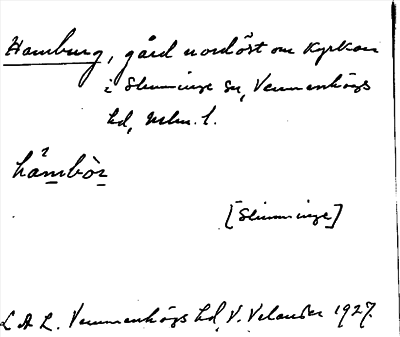 Hamburg, gård nordöst om Kyrkan
i Slimminge sn, Vemmenhögs
hd, Mlm. l.
håmbòr
[Slimminge]
L A L. Vemmenhögs hd, V. Velander 1927.